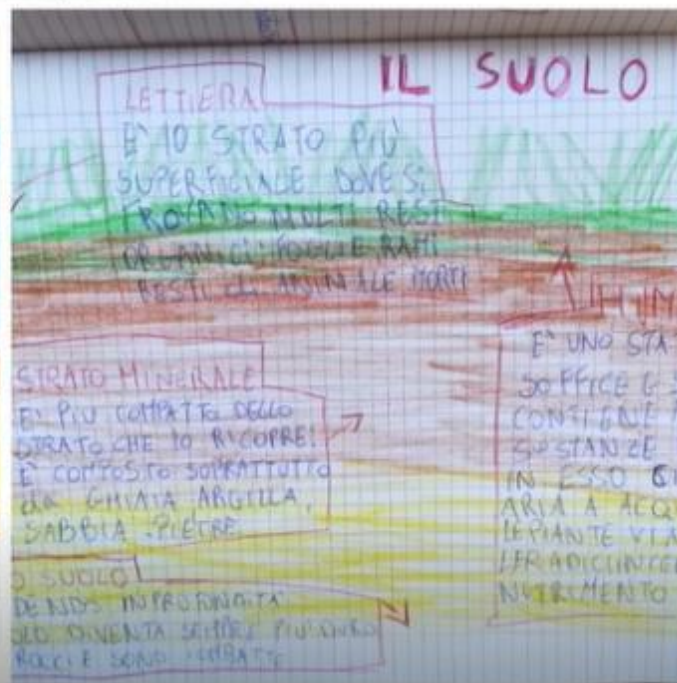 IL SUOLO
LETTIERA
E' LO STRATO PIÙ
SUPERFICIALE DOVE SI
TROVANO MOLTI RESTI
ORGANICI: FOGLIE RAMI
RESTI di ANIMALE MORTI
HUM
E' UNO STA
SOFFICE E S
CONTIENE
SOSTANZE
IN ESSO
ARIA A ACQU
LE PIANTE
NUTRIMENTO
STRATO MINERALE
E' PIU COMPATTO DELLO
STRATO CHE LO RICOPRE!
E' COMPOSTO SOPRATTUTTO
da GHIAIA ARGILLA,
SABBIA, PIETRE
O SUOLO
DENDO IN PROFONDITA'
OLO DIVENTA SEMPRE PIU' DURO
ROCCIE SONO